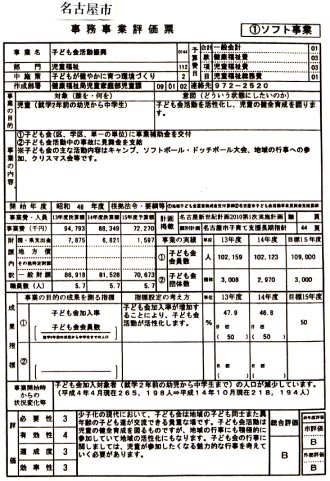 名古屋市
事務事業評価票
①ソフト事業
事業名 子ども会活動振興 0144
部門 児童福祉 112
中施策 子どもが健やかに育つ環境づくり 2
作成部署 健康福祉局児童家庭部児童課 09 01 02 連絡先 972-2520
予算費目
会計 一般会計 01
款 健康福祉費 03
項 児童福祉費 03
目 児童福祉総務費 01
事業の目的
対象（誰、何を）
児童（就学2年前の幼児から中学生）
意図（どういう状態にしたいのか）
子ども会活動を活性化し、児童の健全育成を図ります。
事業の内容
①子ども会（区、学区、単一の単位）に事業補助金を交付
②子ども会活動中の事故に見舞金を支給
※子ども会の主な活動内容はキャンプ、ソフトボール・ドッチボール大会、地域の行事への参加、クリスマス会等です。
開始年度 昭和 46 年度 根拠法令・要綱等
事業費・人員 13年度決算額 14年度決算額 15年度予算額
事業費（千円） 94,793 88,349 72,270
国・県支出金 7,875 6,821 1,597
地方債
その他特定財源
一般財源 86,918 81,528 70,673
職員数（人） 5.7 5.7 5.7
計画掲載 名古屋新世紀計画2010第1次実施計画
個別計画 名古屋市子育て支援長期指針 44 頁
事業の実績 単位 13年度 14年度 目標15年度
① 子ども会会員数 人 102,159 102,123 109,000
② 子ども会団体数 団体 3,008 2,970 3,000
成果指標
事業の目的の成果を測る指標 指標設定の考え方 単位 13年度 14年度 目標15年度
① 子ども会加入率
子ども会会員数
就学2年前の幼児から中学生までの人口
子ども会加入率が増加することにより、子ども会活動が活性化します。
% 47.9 46.8 50
目標 目標
(50) (50)
②
目標 目標
事業開始時からの状況変化等
子ども会加入対象者（就学2年前の幼児から中学生まで）の人口が減少しています。（平成4年4月現在265,198人⇒平成14年10月現在218,194人）
評価
必要性 3
有効性 4
達成度 3
効率性 3
少子化の現代において、子ども会は地域の子ども同士また異年齢の子ども達が交流できる貴重な場です。子ども会活動は児童の健全育成を図るものですが、地域の行事にも積極的に参加していて地域の活性化にもなります。子ども会の行事に関しましては、児童が参加したくなる魅力的な行事を考えていく必要があります。
総合評価 B
B
外部評価
B